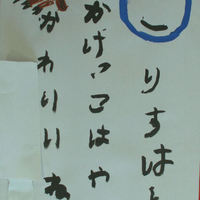 こりすは
かけっこはや
かわいいね